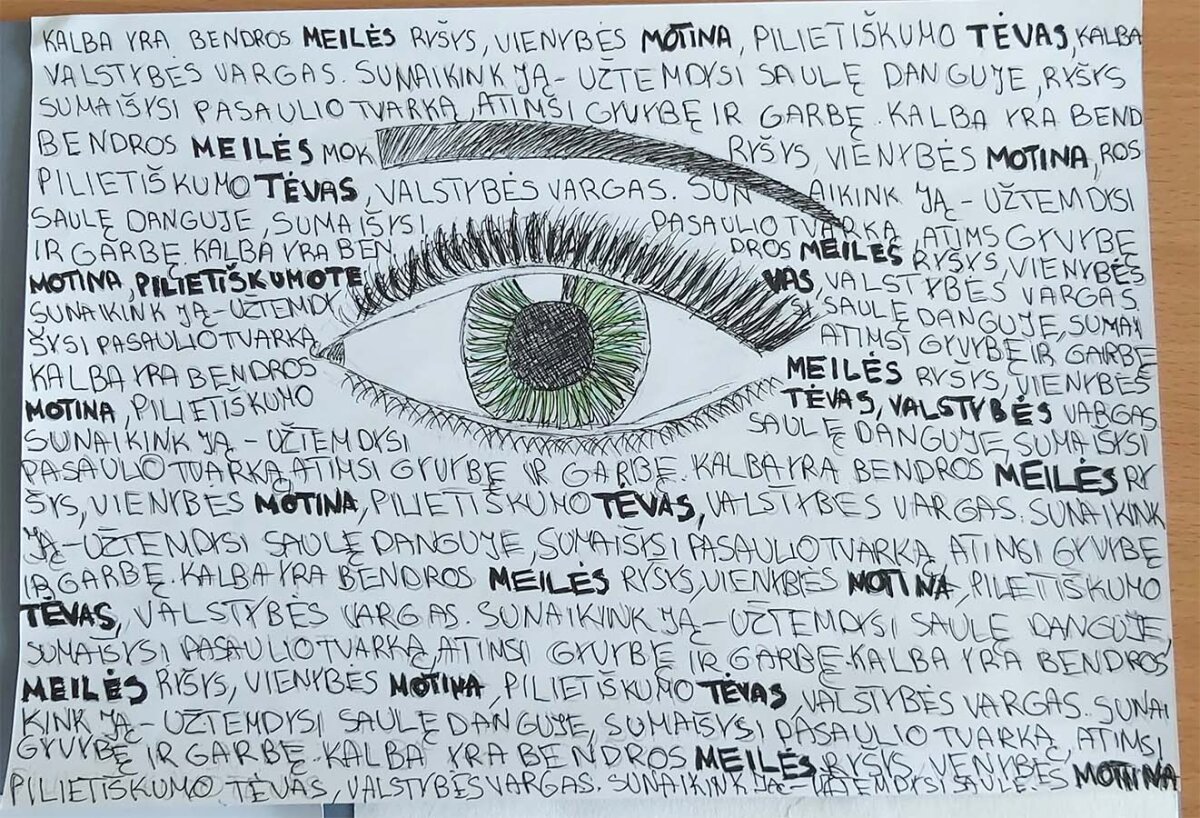 KALBA YRA BENDROS MEILĖS RYŠYS, VIENYBĖS MOTINA, PILIETIŠKUMO TĖVAS, KALBA
VALSTYBĖS VARGAS. SUNAIKINK JĄ - UŽTEMDYSI SAULĘ DANGUJE, RYŠYS
SUMAIŠYSI PASAULIO TVARKĄ, ATIMSI GYVYBĘ IR GARBĘ. KALBA YRA BEND
BENDROS MEILĖS MOK RYŠYS, VIENYBĖS MOTINA, ROS
PILIETIŠKUMO TĖVAS, VALSTYBĖS VARGAS. SUN AIKINK JĄ - UŽTEMDYSI
SAULĘ DANGUJE, SUMAIŠYSI PASAULIO TVARKĄ, ATIMS GYVYBĘ
IR GARBĘ. KALBA YRA BEN DROS MEILĖS RYŠYS, VIENYBĖS
MOTINA, PILIETIŠKUMO TĖ VAS, VALSTYBĖS VARGAS.
SUNAIKINK JĄ - UŽTEMDY SI SAULĘ DANGUJE, SUMAI
ŠYSI PASAULIO TVARKĄ ATIMSI GYVYBĘ IR GARBĘ
KALBA YRA BENDROS MEILĖS RYŠYS, VIENYBĖS
MOTINA, PILIETIŠKUMO TĖVAS, VALSTYBĖS VARGAS
SUNAIKINK JĄ - UŽTEMDYSI SAULĘ DANGUJE, SUMAIŠYSI
PASAULIO TVARKĄ, ATIMSI GYVYBĘ IR GARBĘ. KALBA YRA BENDROS MEILĖS RY
ŠYS, VIENYBĖS MOTINA, PILIETIŠKUMO TĖVAS, VALSTYBĖS VARGAS. SUNAIKINK
JĄ - UŽTEMDYSI SAULĘ DANGUJE, SUMAIŠYSI PASAULIO TVARKĄ, ATIMSI GYVYBĘ
IR GARBĘ. KALBA YRA BENDROS MEILĖS RYŠYS, VIENYBĖS MOTINA, PILIETIŠKUMO
TĖVAS, VALSTYBĖS VARGAS. SUNAIKINK JĄ - UŽTEMDYSI SAULĘ DANGUJE,
SUMAIŠYSI PASAULIO TVARKĄ, ATIMSI GYVYBĘ IR GARBĘ. KALBA YRA BENDROS
MEILĖS RYŠYS, VIENYBĖS MOTINA, PILIETIŠKUMO TĖVAS, VALSTYBĖS VARGAS. SUNAI
KINK JĄ - UŽTEMDYSI SAULĘ DANGUJE, SUMAIŠYSI PASAULIO TVARKĄ, ATIMSI
GYVYBĘ IR GARBĘ. KALBA YRA BENDROS MEILĖS RYŠYS, VENYBĖS MOTINA
PILIETIŠKUMO TĖVAS, VALSTYBĖS VARGAS. SUNAIKINK JĄ - UŽTEMDYSI SAULĘ